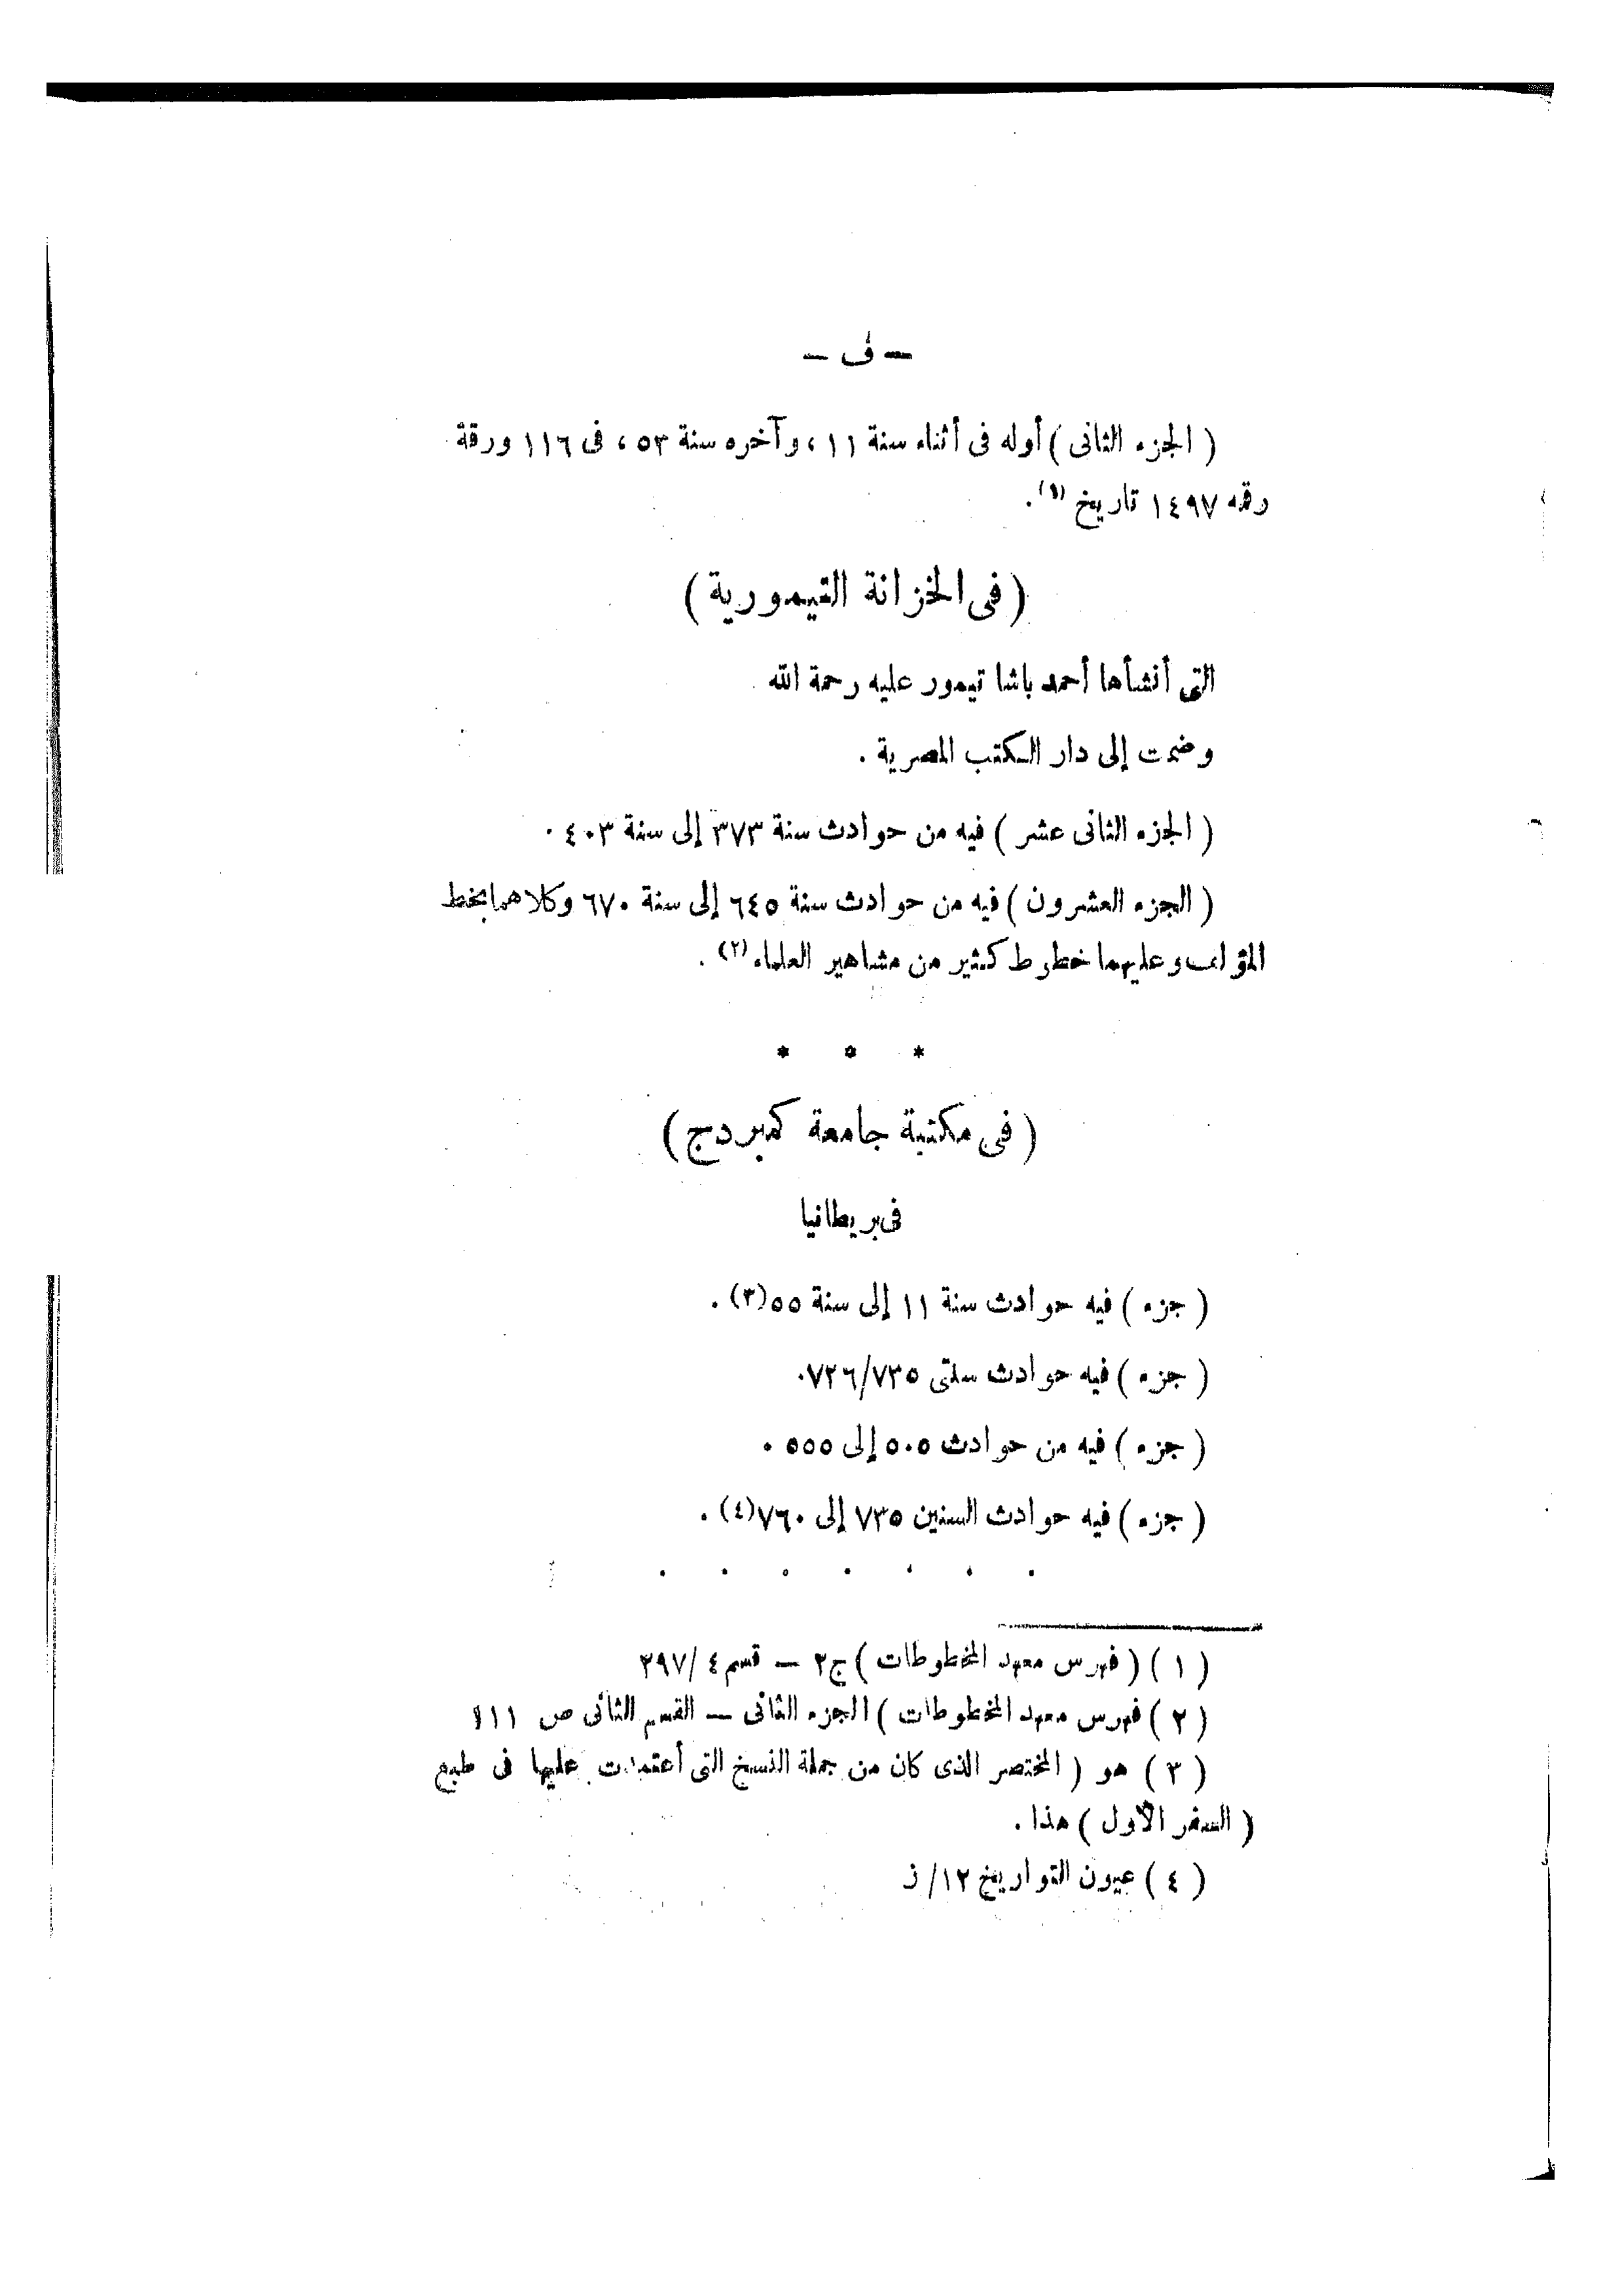 — ف —
( الجزء الثانى ) أوله فى أثناء سنة ١١ ، وآخره سنة ٥٣ ، فى ١١٦ ورقة
رقمه ١٤٩٧ تاريخ (١) .
( فى الخزانة التيمورية )
التى أنشأها أحمد باشا تيمور عليه رحمة الله
وضمت إلى دار الكتب المصرية .
( الجزء الثانى عشر ) فيه من حوادث سنة ٣٧٣ إلى سنة ٤٠٣ .
( الجزء العشرون ) فيه من حوادث سنة ٦٤٥ إلى سنة ٦٧٠ وكلاهما بخط
المؤلف وعليهما خطوط كثير من مشاهير العلماء (٢) .
* * *
( فى مكتبة جامعة كمبردج )
فى بريطانيا
( جزء ) فيه حوادث سنة ١١ إلى سنة ٥٥ (٣) .
( جزء ) فيه حوادث سنتى ٧٢٦/٧٣٥ .
( جزء ) فيه من حوادث ٥٠٥ إلى ٥٥٥ .
( جزء ) فيه حوادث السنين ٧٣٥ إلى ٧٦٠ (٤) .
. . . . . . .
( ١ ) ( فهرس معهد المخطوطات ) ج٢ — قسم ٤ / ٢٩٧
( ٢ ) فهرس معهد المخطوطات ) الجزء الثانى — القسم الثانى ص ١١١
( ٣ ) هو ( المختصر الذى كان من جملة النسخ التى أعتمدت عليها فى طبع
( السفر الأول ) هذا .
( ٤ ) عيون التواريخ ١٢/ ز